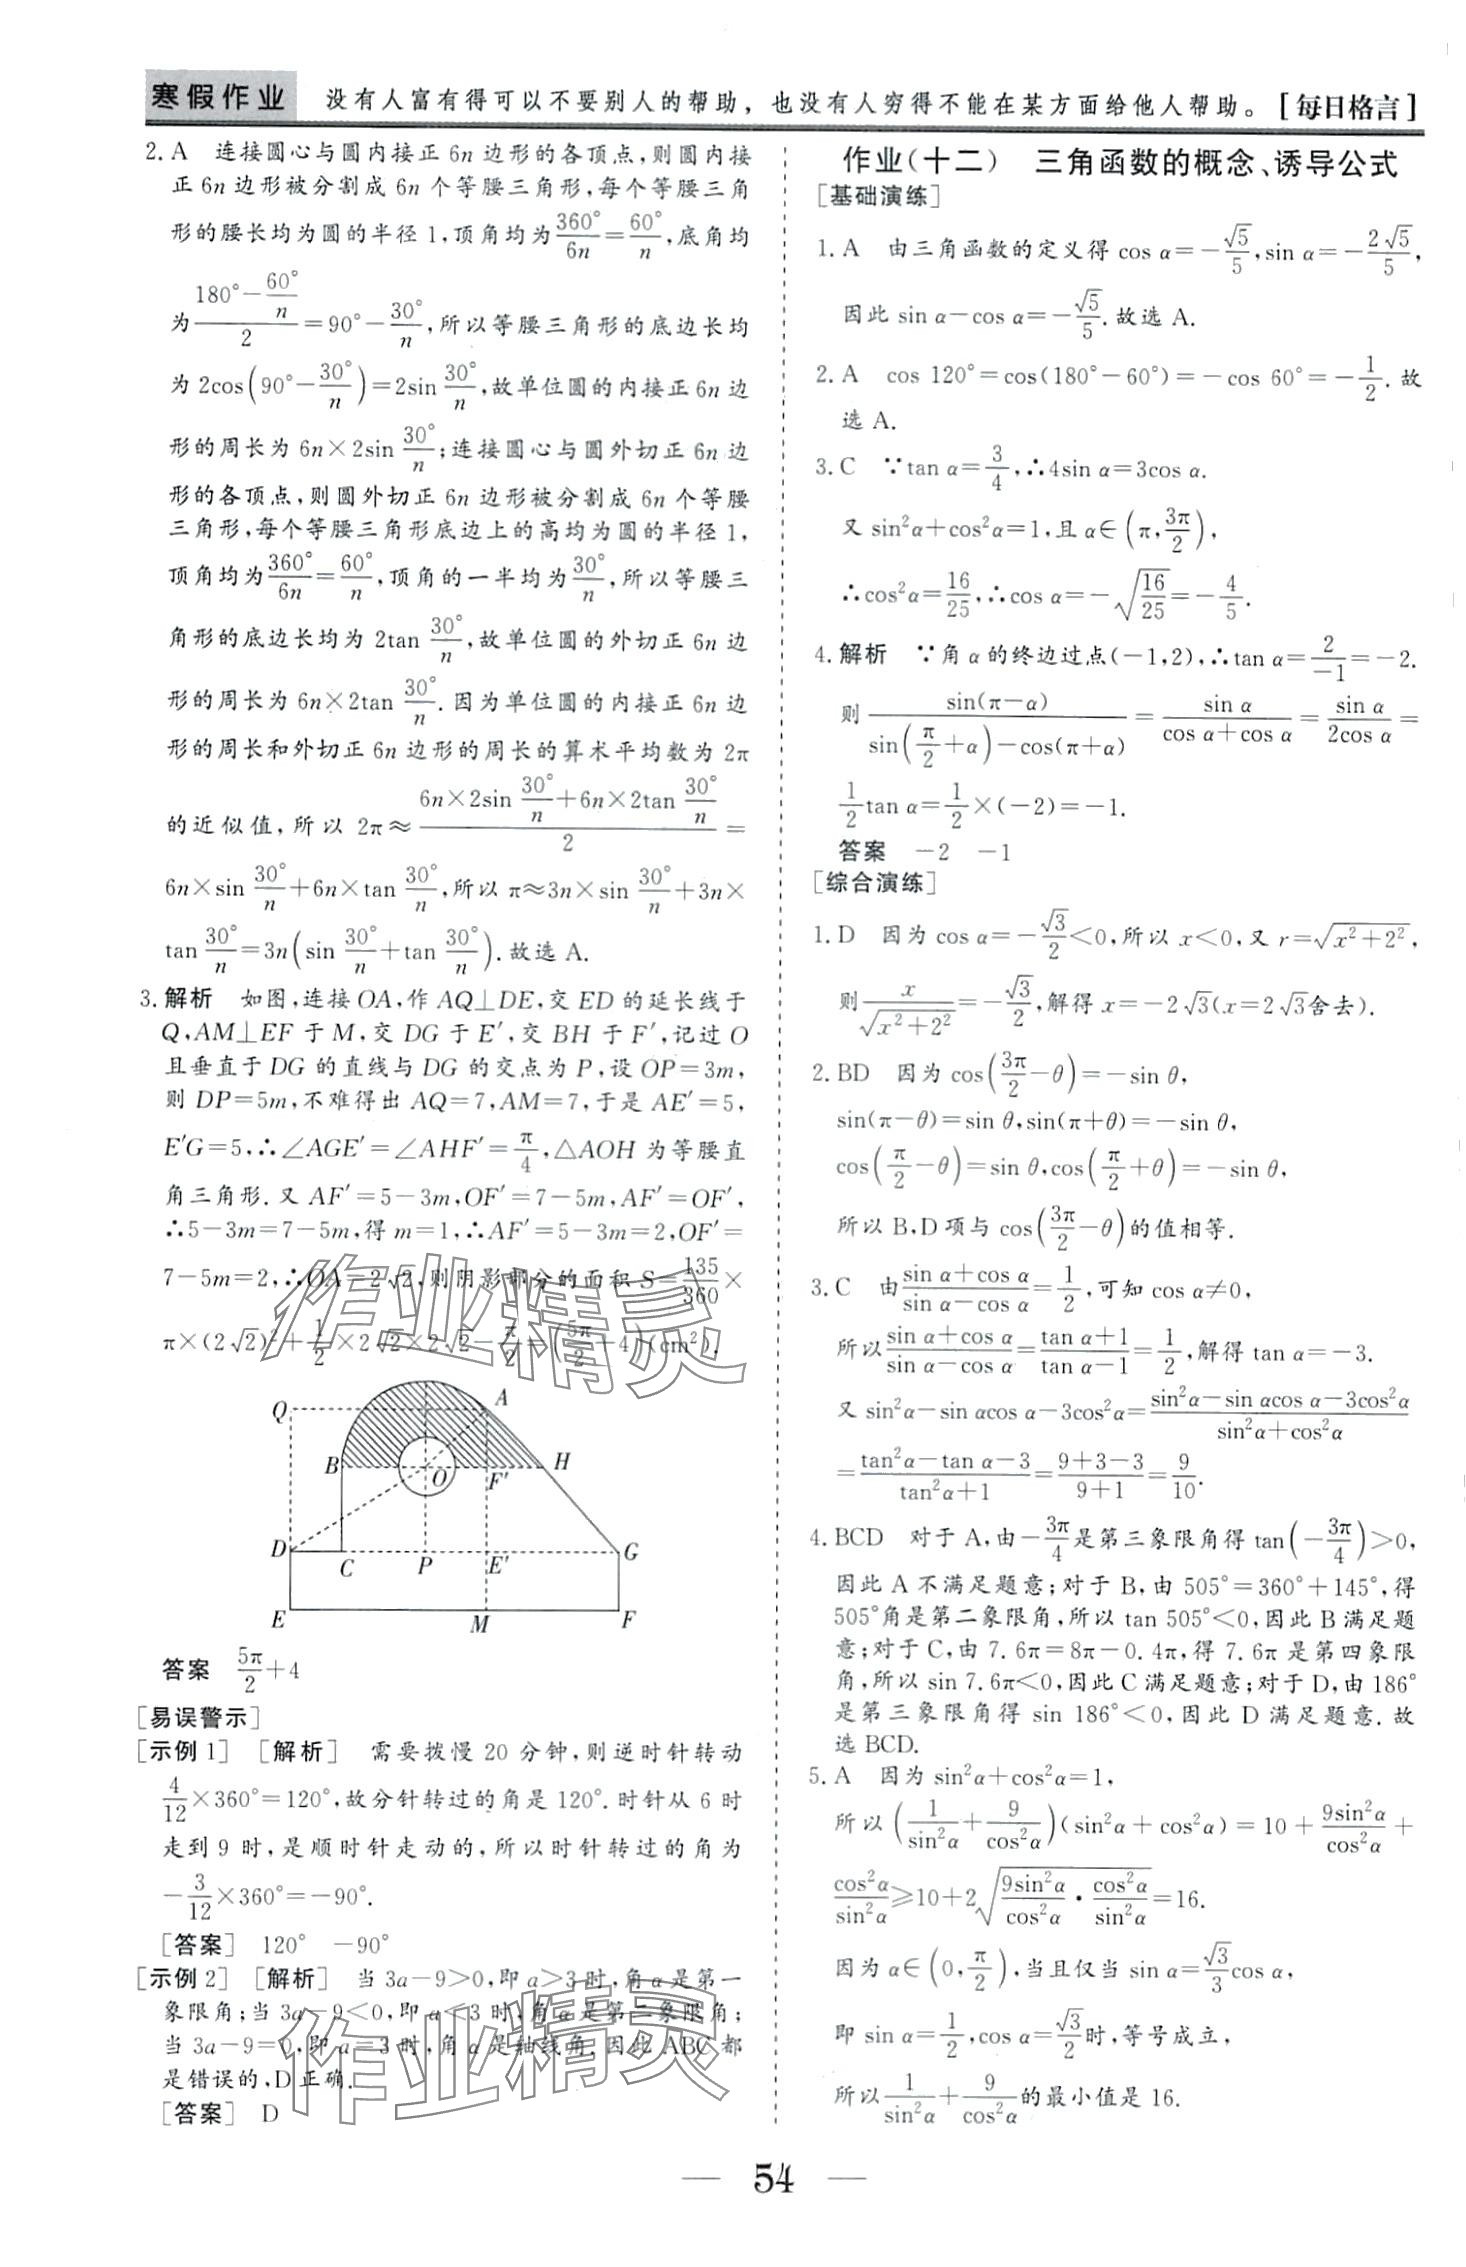 寒假作业 没有人富有得可以不要别人的帮助，也没有人穷得不能在某方面给他人帮助。[每日格言]
2. A 连接圆心与圆内接正 6n 边形的各顶点，则圆内接
正 6n 边形被分割成 6n 个等腰三角形，每个等腰三角
形的腰长均为圆的半径 1，顶角均为360°/6n=60°/n，底角均
为(180°-60°/n)/2=90°-30°/n，所以等腰三角形的底边长均
为 2cos(90°-30°/n)=2sin 30°/n，故单位圆的内接正 6n 边
形的周长为 6n×2sin 30°/n；连接圆心与圆外切正 6n 边
形的各顶点，则圆外切正 6n 边形被分割成 6n 个等腰
三角形，每个等腰三角形底边上的高均为圆的半径 1，
顶角均为360°/6n=60°/n，顶角的一半均为30°/n，所以等腰三
角形的底边长均为 2tan 30°/n，故单位圆的外切正 6n 边
形的周长为 6n×2tan 30°/n. 因为单位圆的内接正 6n 边
形的周长和外切正 6n 边形的周长的算术平均数为 2π
的近似值，所以 2π≈(6n×2sin 30°/n+6n×2tan 30°/n)/2=
6n×sin 30°/n+6n×tan 30°/n，所以 π≈3n×sin 30°/n+3n×
tan 30°/n=3n(sin 30°/n+tan 30°/n). 故选 A.
3. 解析 如图，连接 OA，作 AQ⊥DE，交 ED 的延长线于
Q，AM⊥EF 于 M，交 DG 于 E′，交 BH 于 F′，记过 O
且垂直于 DG 的直线与 DG 的交点为 P，设 OP=3m，
则 DP=5m，不难得出 AQ=7，AM=7，于是 AE′=5，
E′G=5，∴∠AGE′=∠AHF′=π/4，△AOH 为等腰直
角三角形. 又 AF′=5-3m，OF′=7-5m，AF′=OF′，
∴5-3m=7-5m，得 m=1，∴AF′=5-3m=2，OF′=
7-5m=2，∴OA=2√2，则阴影部分的面积 S=135/360×
π×(2√2)²+1/2×2√2×2√2-π/2=(5π/2+4)(cm²).
Q A
B O F′ H
D C P E′ G
E M F
答案 5π/2+4
[易误警示]
[示例 1] [解析] 需要拨慢 20 分钟，则逆时针转动
4/12×360°=120°，故分针转过的角是 120°. 时针从 6 时
走到 9 时，是顺时针走动的，所以时针转过的角为
-3/12×360°=-90°.
[答案] 120° -90°
[示例 2] [解析] 当 3a-9>0，即 a>3 时，角 α 是第一
象限角；当 3a-9<0，即 a<3 时，角 α 是第二象限角；
当 3a-9=0，即 a=3 时，角 α 是轴线角. 因此 ABC 都
是错误的，D 正确.
[答案] D
作业（十二） 三角函数的概念、诱导公式
[基础演练]
1. A 由三角函数的定义得 cos α=-√5/5，sin α=-2√5/5，
因此 sin α-cos α=-√5/5. 故选 A.
2. A cos 120°=cos(180°-60°)=-cos 60°=-1/2. 故
选 A.
3. C ∵tan α=3/4，∴4sin α=3cos α.
又 sin²α+cos²α=1，且 α∈(π,3π/2)，
∴cos²α=16/25，∴cos α=-√(16/25)=-4/5.
4. 解析 ∵角 α 的终边过点(-1,2)，∴tan α=2/-1=-2.
则 sin(π-α)/(sin(π/2+α)-cos(π+α))=sin α/(cos α+cos α)=sin α/2cos α=
1/2tan α=1/2×(-2)=-1.
答案 -2 -1
[综合演练]
1. D 因为 cos α=-√3/2<0，所以 x<0，又 r=√(x²+2²)，
则 x/√(x²+2²)=-√3/2，解得 x=-2√3(x=2√3舍去).
2. BD 因为 cos(3π/2-θ)=-sin θ，
sin(π-θ)=sin θ，sin(π+θ)=-sin θ，
cos(π/2-θ)=sin θ，cos(π/2+θ)=-sin θ，
所以 B、D 项与 cos(3π/2-θ)的值相等.
3. C 由(sin α+cos α)/(sin α-cos α)=1/2，可知 cos α≠0，
所以(sin α+cos α)/(sin α-cos α)=(tan α+1)/(tan α-1)=1/2，解得 tan α=-3.
又 sin²α-sin αcos α-3cos²α=(sin²α-sin αcos α-3cos²α)/(sin²α+cos²α)
=(tan²α-tan α-3)/(tan²α+1)=(9+3-3)/(9+1)=9/10.
4. BCD 对于 A，由-3π/4是第三象限角得 tan(-3π/4)>0，
因此 A 不满足题意；对于 B，由 505°=360°+145°，得
505°角是第二象限角，所以 tan 505°<0，因此 B 满足题
意；对于 C，由 7.6π=8π-0.4π，得 7.6π是第四象限
角，所以 sin 7.6π<0，因此 C 满足题意；对于 D，由 186°
是第三象限角得 sin 186°<0，因此 D 满足题意. 故
选 BCD.
5. A 因为 sin²α+cos²α=1，
所以(1/sin²α+9/cos²α)(sin²α+cos²α)=10+9sin²α/cos²α+
cos²α/sin²α≥10+2√(9sin²α/cos²α·cos²α/sin²α)=16.
因为 α∈(0,π/2)，当且仅当 sin α=√3/3cos α，
即 sin α=1/2，cos α=√3/2时，等号成立，
所以1/sin²α+9/cos²α的最小值是 16.
作业精灵
作业精灵
— 54 —